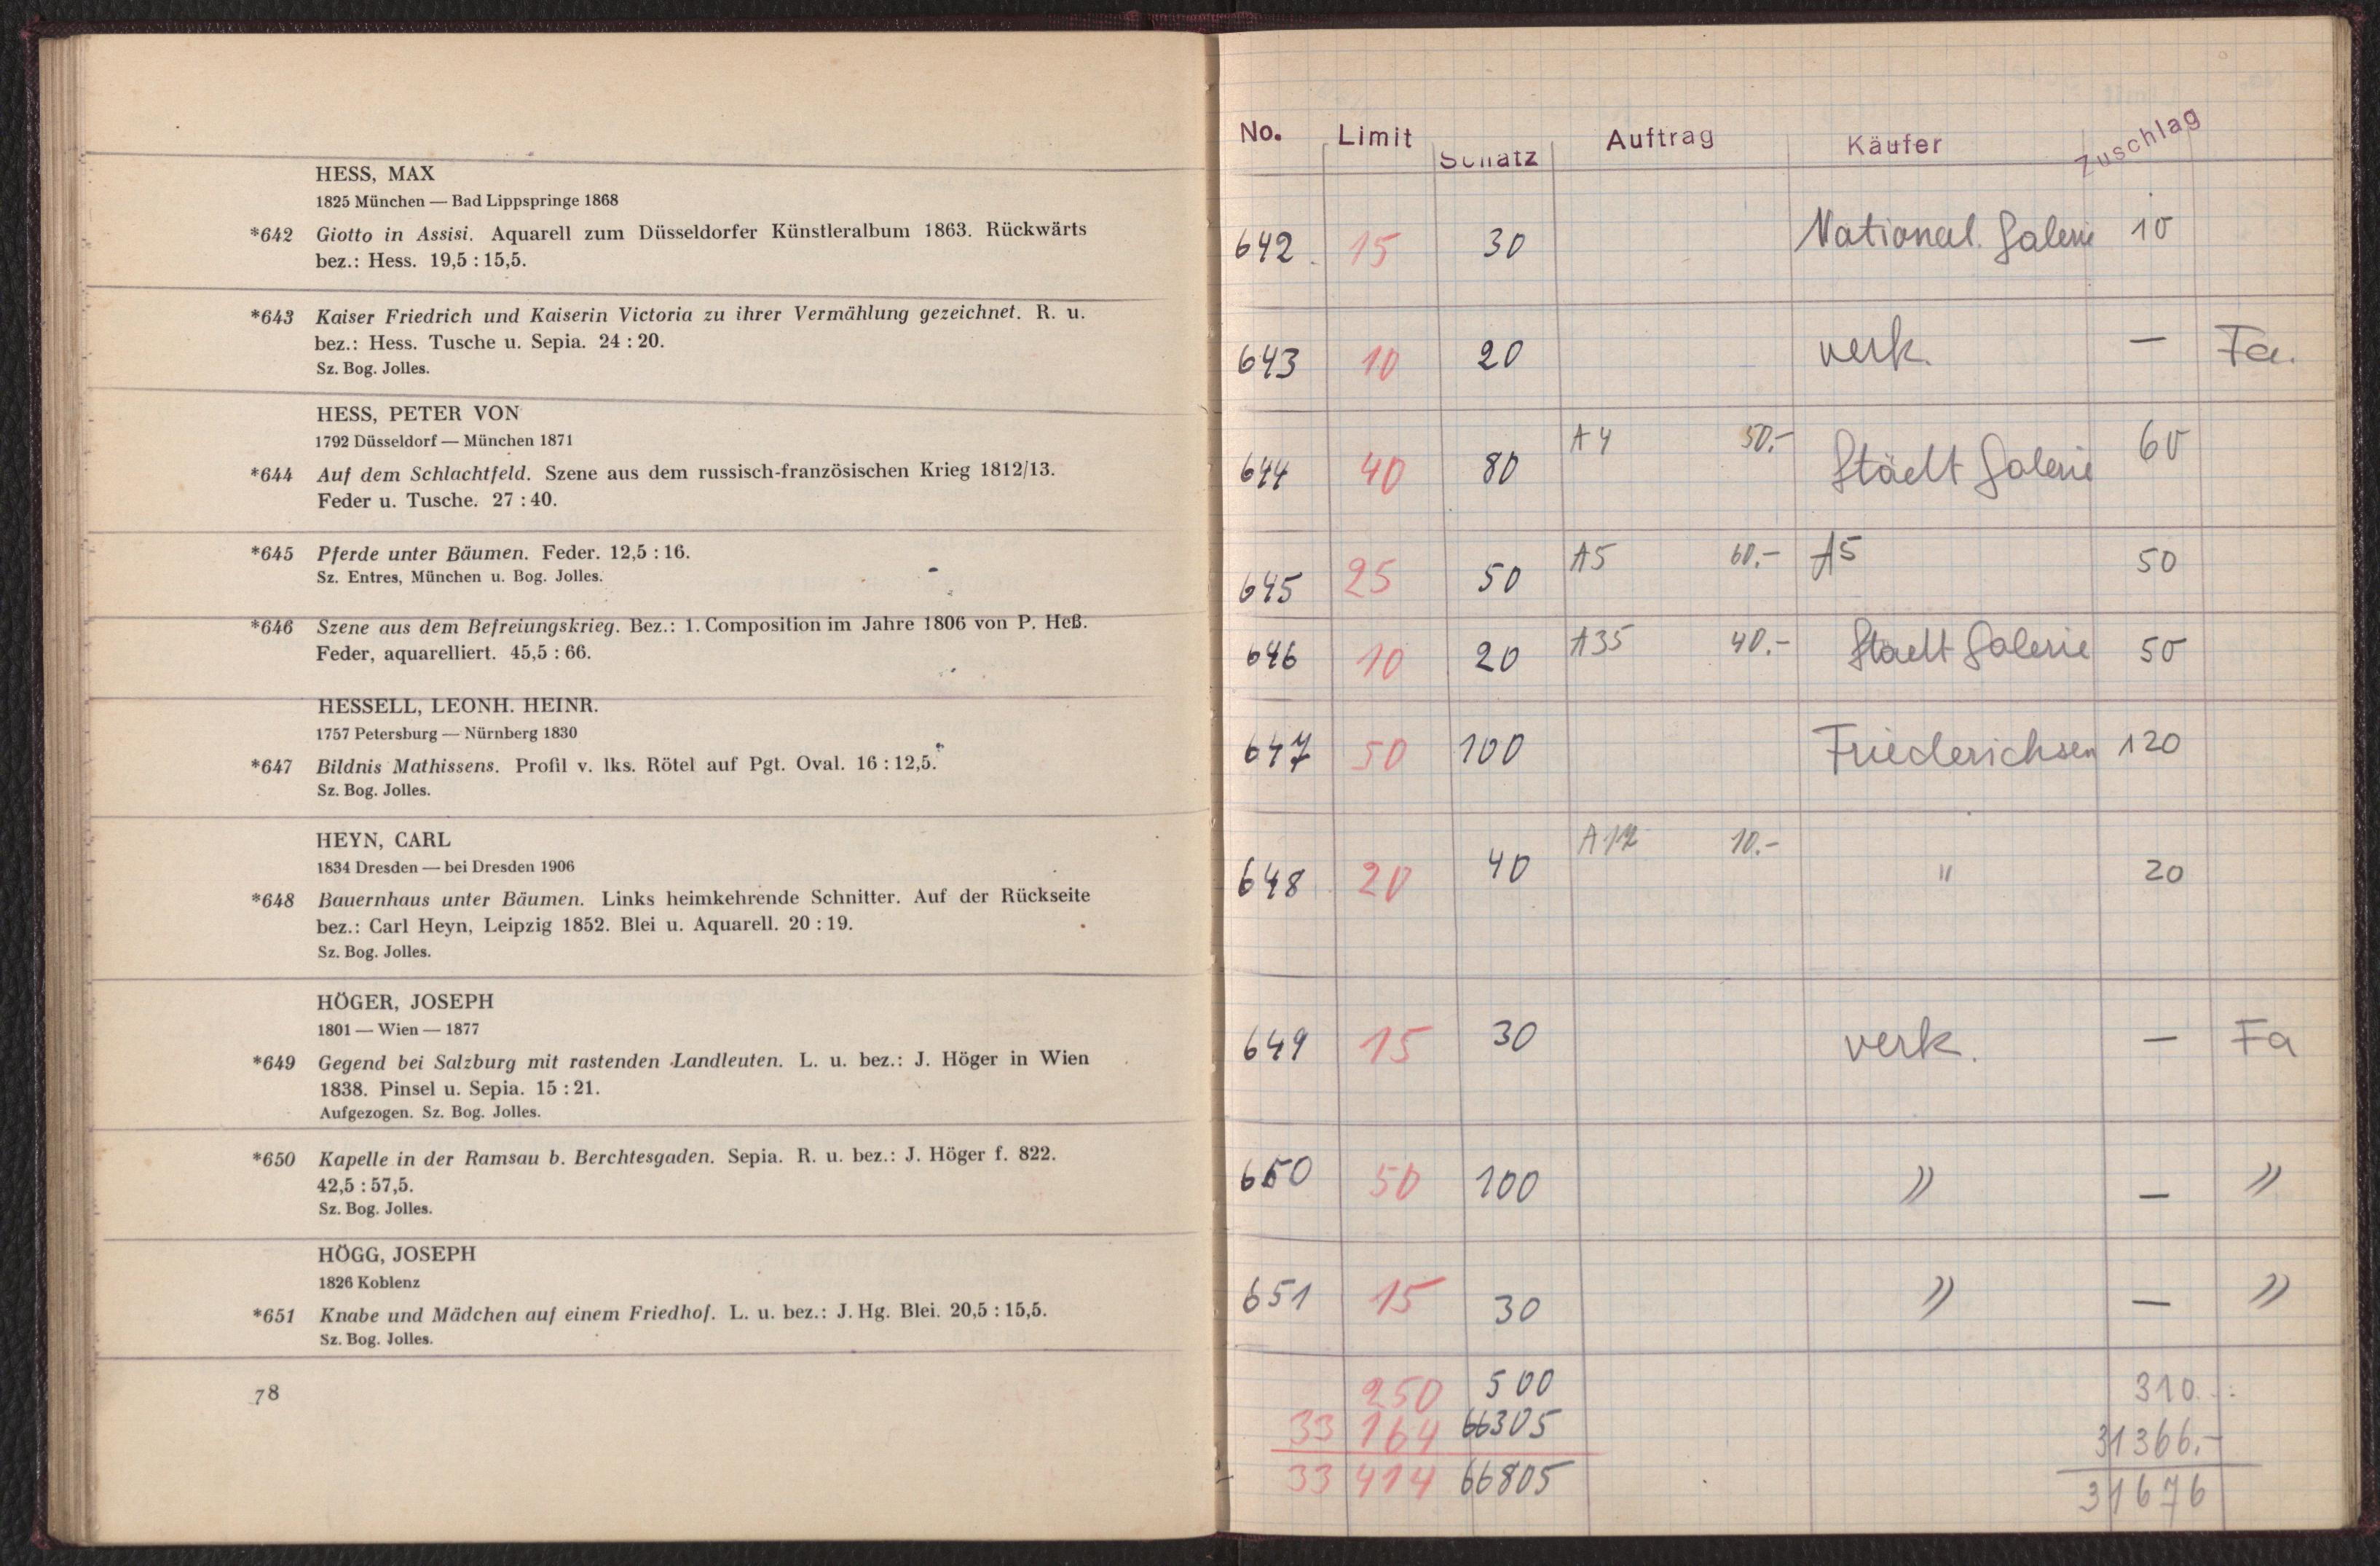 HESS, MAX
1825 München — Bad Lippspringe 1868
*642 Giotto in Assisi. Aquarell zum Düsseldorfer Künstleralbum 1863. Rückwärts
bez.: Hess. 19,5 : 15,5.
*643 Kaiser Friedrich und Kaiserin Victoria zu ihrer Vermählung gezeichnet. R. u.
bez.: Hess. Tusche u. Sepia. 24 : 20.
Sz. Bog. Jolles.
HESS, PETER VON
1792 Düsseldorf — München 1871
*644 Auf dem Schlachtfeld. Szene aus dem russisch-französischen Krieg 1812/13.
Feder u. Tusche. 27 : 40.
*645 Pferde unter Bäumen. Feder. 12,5 : 16.
Sz. Entres, München u. Bog. Jolles.
*646 Szene aus dem Befreiungskrieg. Bez.: 1. Composition im Jahre 1806 von P. Heß.
Feder, aquarelliert. 45,5 : 66.
HESSELL, LEONH. HEINR.
1757 Petersburg — Nürnberg 1830
*647 Bildnis Mathissens. Profil v. lks. Rötel auf Pgt. Oval. 16 : 12,5.
Sz. Bog. Jolles.
HEYN, CARL
1834 Dresden — bei Dresden 1906
*648 Bauernhaus unter Bäumen. Links heimkehrende Schnitter. Auf der Rückseite
bez.: Carl Heyn, Leipzig 1852. Blei u. Aquarell. 20 : 19.
Sz. Bog. Jolles.
HÖGER, JOSEPH
1801 — Wien — 1877
*649 Gegend bei Salzburg mit rastenden Landleuten. L. u. bez.: J. Höger in Wien
1838. Pinsel u. Sepia. 15 : 21.
Aufgezogen. Sz. Bog. Jolles.
*650 Kapelle in der Ramsau b. Berchtesgaden. Sepia. R. u. bez.: J. Höger f. 822.
42,5 : 57,5.
Sz. Bog. Jolles.
HÖGG, JOSEPH
1826 Koblenz
*651 Knabe und Mädchen auf einem Friedhof. L. u. bez.: J. Hg. Blei. 20,5 : 15,5.
Sz. Bog. Jolles.
78
No. Limit Schatz Auftrag Käufer Zuschlag
642 15 30 National. Galerie 10
643 10 20 verk. — Fa.
644 40 80 A4 50.- Städt Galerie 60
645 25 50 A5 60.- A5 50
646 10 20 A35 40.- Städt Galerie 50
647 50 100 Friederichsen 120
648 20 40 A12 10.- " 20
649 15 30 verk. — Fa
650 50 100 " — "
651 15 30 " — "
250 500 310.-
33 164 66305 31366.-
33 414 66805 31676